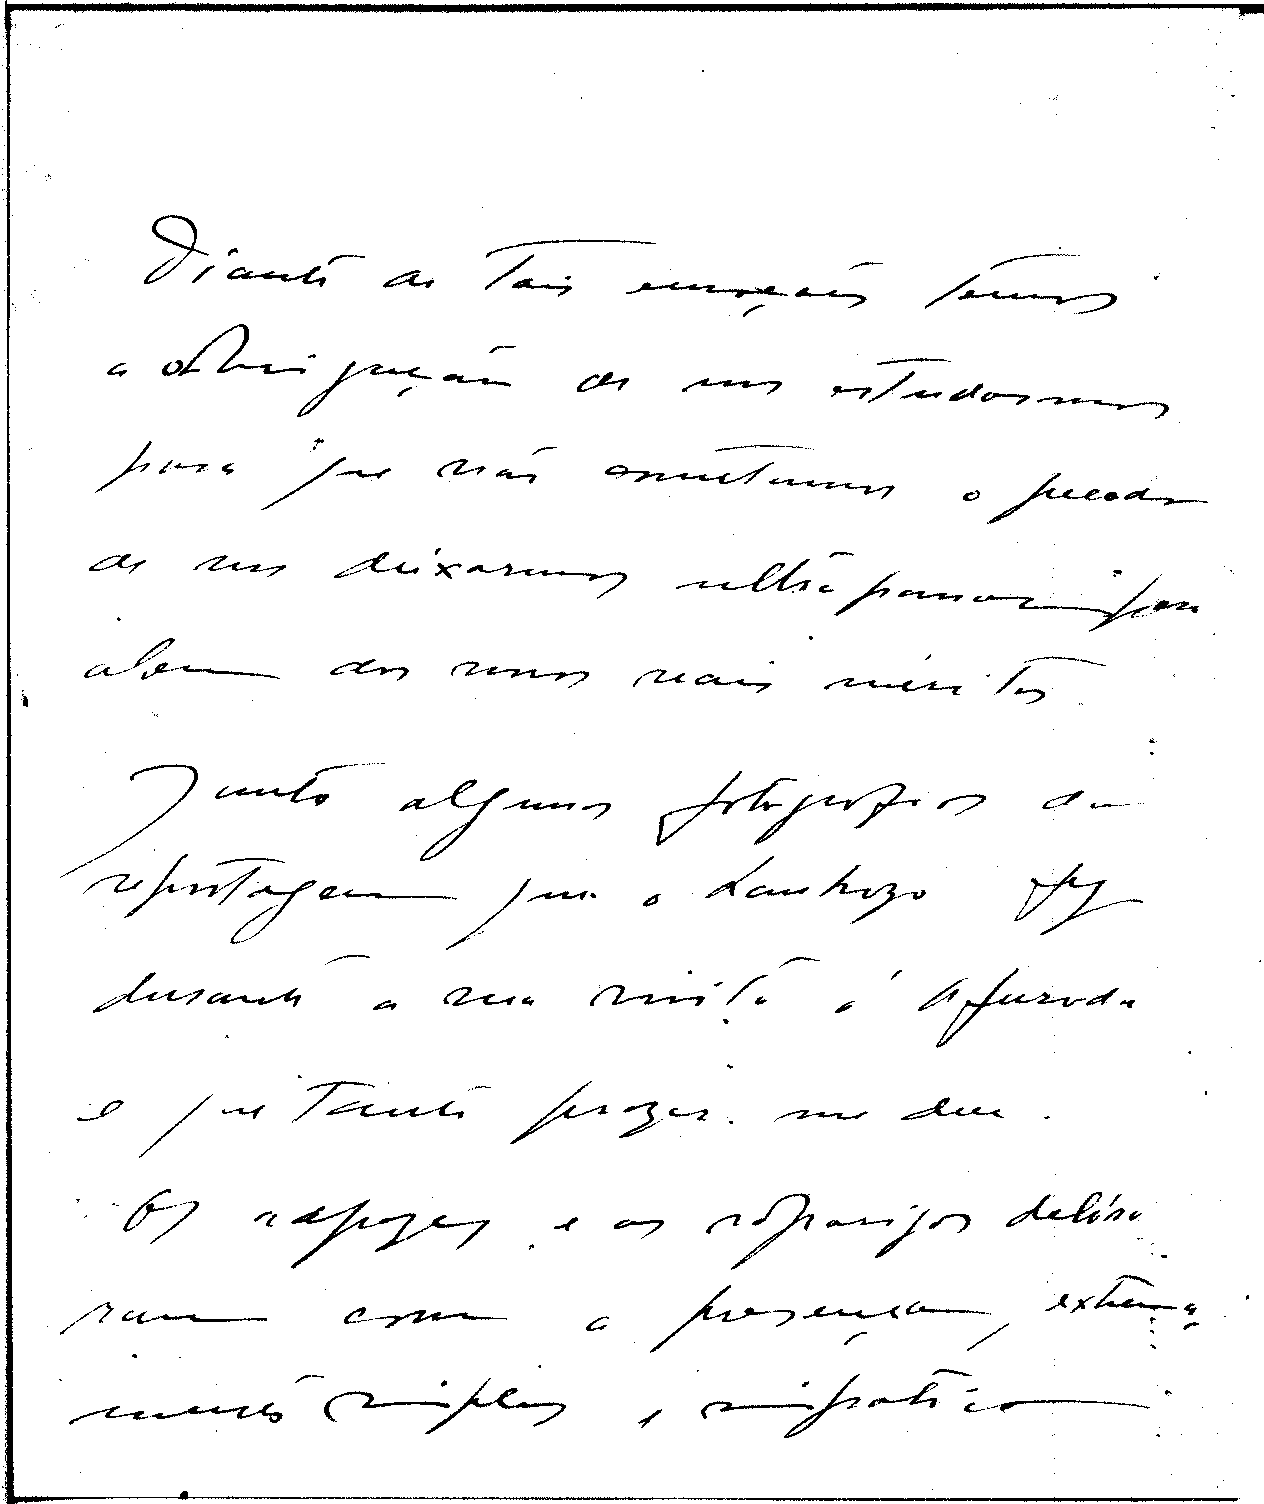 Diante de tais emoções temos
a obrigação de nos estudarmos
para que não cometamos o pecado
de nos deixarmos ultrapassar para
alem dos nossos reais méritos.
Junto algumas fotografias da
reportagem que o Lanhozo fez
durante a sua visita á Afurada
e que tanto prazer me deu.
Os rapazes e as raparigas delira
ram com a presença, extrema
mente simples e simpática